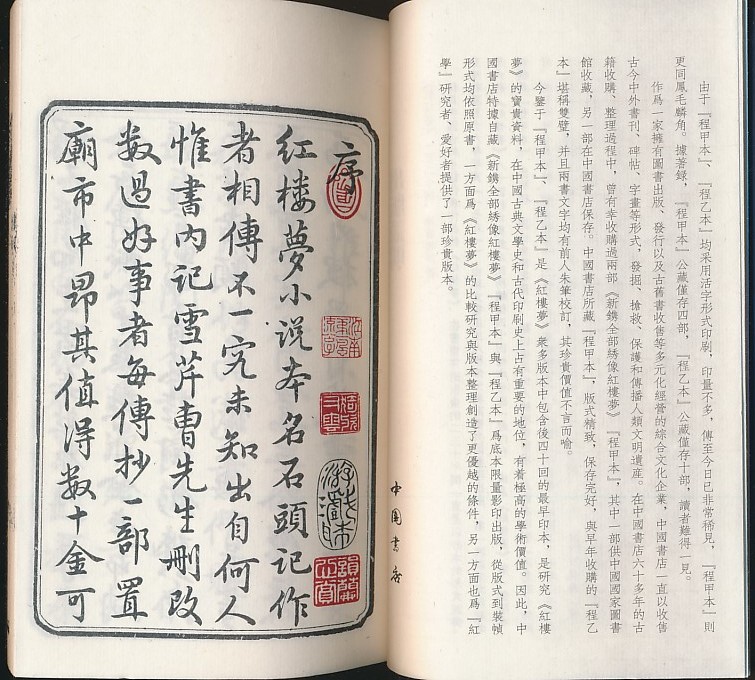 由于『程甲本』、『程乙本』均采用活字形式印刷，印量不多，傳至今日已非常稀見，『程甲本』則
更同鳳毛麟角。據著録，『程甲本』公藏僅存四部，『程乙本』公藏僅存十部，讀者難得一見。
作爲一家擁有圖書出版、發行以及古舊書收售等多元化經營的綜合文化企業，中國書店一直以收售
古今中外書刊、碑帖、字畫等形式，發掘、搶救、保護和傳播人類文明遺産。在中國書店六十多年的古
籍收購、整理過程中，曾有幸收購過兩部《新鐫全部綉像紅樓夢》『程甲本』，其中一部供中國國家圖書
館收藏，另一部在中國書店保存。中國書店所藏『程甲本』，版式精致，保存完好，與早年收購的『程乙
本』堪稱雙璧，并且兩書文字均有前人朱筆校訂，其珍貴價值不言而喻。
今鑒于『程甲本』、『程乙本』是《紅樓夢》衆多版本中包含後四十回的最早印本，是研究《紅樓
夢》的寶貴資料，在中國古典文學史和古代印刷史上占有重要的地位，有着極高的學術價值。因此，中
國書店特據自藏《新鐫全部綉像紅樓夢》『程甲本』與『程乙本』爲底本限量影印出版，從版式到裝幀
形式均依照原書，一方面爲《紅樓夢》的比較研究與版本整理創造了更優越的條件，另一方面也爲『紅
學』研究者、愛好者提供了一部珍貴版本。
中國書店
序
紅樓夢小説本名石頭記作
者相傳不一究未知出自何人
惟書内記雪芹曹先生刪改
數過好事者每傳抄一部置
廟市中昂其值得數十金可